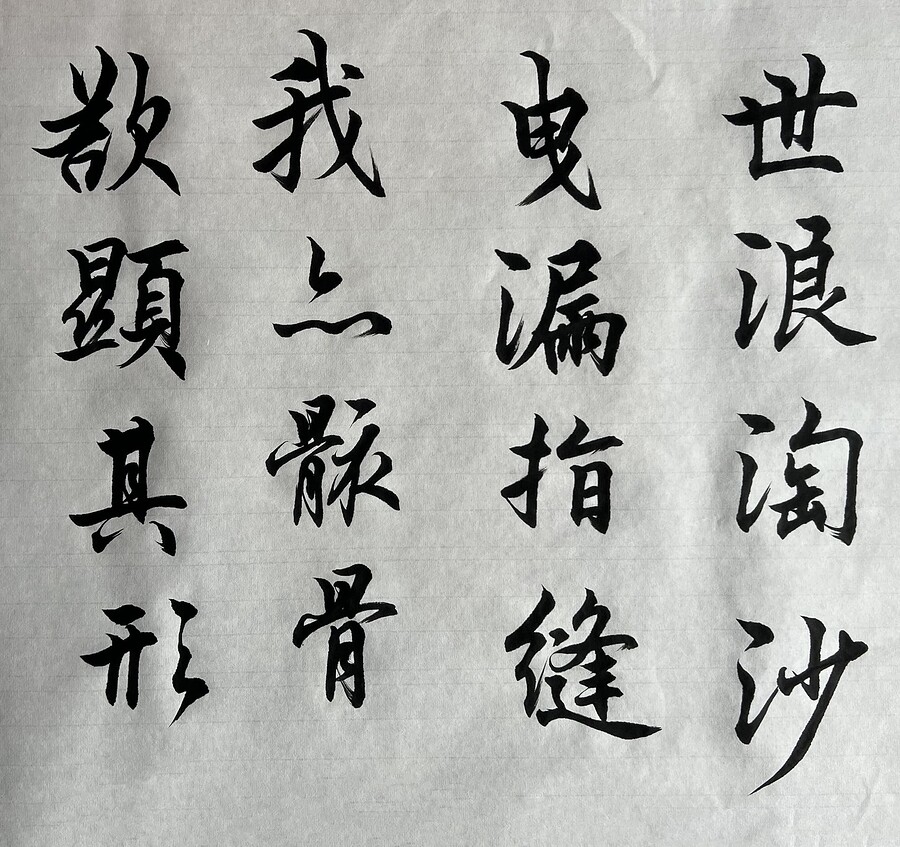 世浪淘沙
曳漏指縫
我亦骸骨
欲顕其形